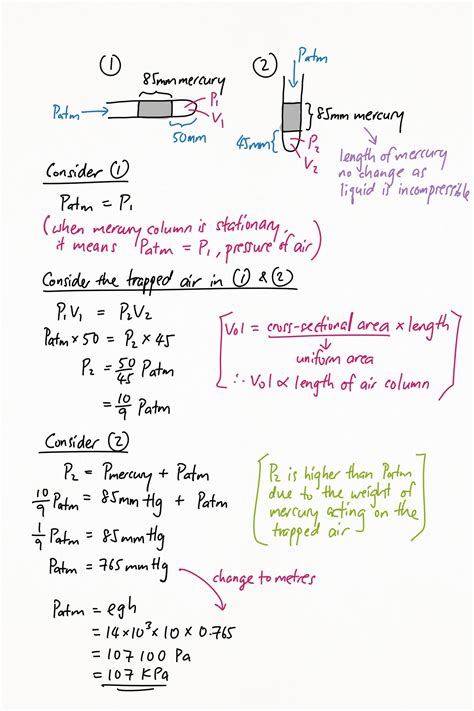 ① ②
85mm mercury
Patm
P1
V1
50mm
Patm
85mm mercury
45mm
P2
V2
length of mercury
no change as
liquid is incompressible
Consider ①
Patm = P1
(when mercury column is stationary,
it means Patm = P1, pressure of air)
Consider the trapped air in ① & ②
P1V1 = P2V2
Patm × 50 = P2 × 45
P2 = 50/45 Patm
= 10/9 Patm
[Vol = cross-sectional area × length
uniform area
∴ Vol ∝ length of air column]
Consider ②
P2 = Pmercury + Patm
10/9 Patm = 85mmHg + Patm
1/9 Patm = 85mmHg
Patm = 765mmHg
[P2 is higher than Patm
due to the weight of
mercury acting on the
trapped air]
change to metres
Patm = ρgh
= 14×10³ × 10 × 0.765
= 107 100 Pa
= 107 KPa